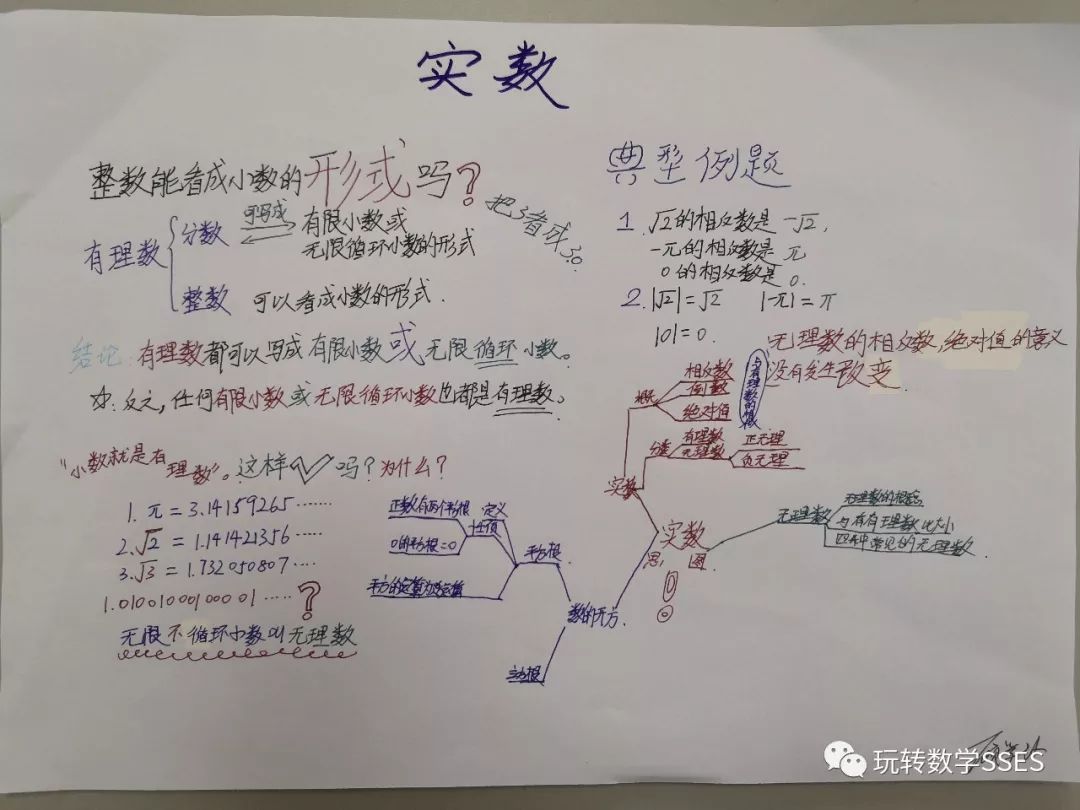 实数
整数能看成小数的形式吗？
把3看成3.0
有理数
分数
可写成
有限小数或
无限循环小数的形式
整数 可以看成小数的形式.
结论: 有理数都可以写成有限小数或无限循环小数。
反之,任何有限小数或无限循环小数也都是有理数。
"小数就是有理数"。这样 吗?为什么?
1. π = 3.14159265……
2. √2 = 1.141421356……
3. √3 = 1.732050807…
1.01001000100001…… ?
无限不循环小数叫无理数
典型例题
1. √2的相反数是-√2,
-π的相反数是 π
0的相反数是0.
2. |√2|=√2 |-π|=π
|0|=0.
无理数的相反数,绝对值的意义
没有发生改变
概念
相反数
倒数
绝对值
分类
有理数
无理数
正无理
负无理
实数
实数
思 图
无理数
无理数的概念
与有有理数比大小
常见的无理数
正数有两个平方根
0的平方根=0
定义
平方根
数的开方.
立方根
玩转数学SSES